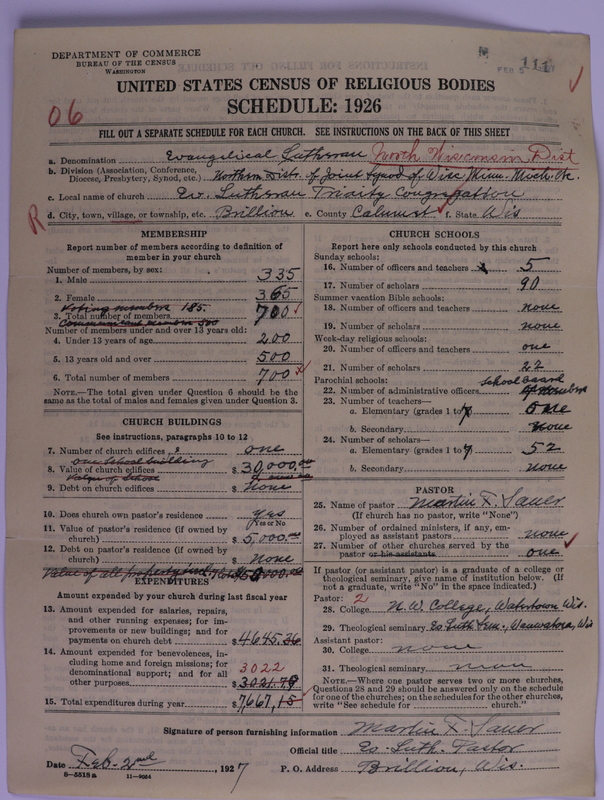 DEPARTMENT OF COMMERCE
BUREAU OF THE CENSUS
WASHINGTON
FEB 5
111
UNITED STATES CENSUS OF RELIGIOUS BODIES
SCHEDULE: 1926
06
FILL OUT A SEPARATE SCHEDULE FOR EACH CHURCH. SEE INSTRUCTIONS ON THE BACK OF THIS SHEET
a. Denomination Evangelical Lutheran North Wisconsin Dist
b. Division (Association, Conference, Diocese, Presbytery, Synod, etc.) Northern Distr. of Joint Synod of Wisc. Minn. Mich. etc.
c. Local name of church Ev. Lutheran Trinity Congregation
R d. City, town, village, or township, etc. Brillion e. County Calumet f. State Wis
MEMBERSHIP
Report number of members according to definition of member in your church
Number of members, by sex:
1. Male 335
2. Female 365
Voting members 185.
3. Total number of members 700
Communicant members 500
Number of members under and over 13 years old:
4. Under 13 years of age 200
5. 13 years old and over 500
6. Total number of members 700
NOTE.—The total given under Question 6 should be the same as the total of males and females given under Question 3.
CHURCH BUILDINGS
See instructions, paragraphs 10 to 12
7. Number of church edifices one
one School building
8. Value of church edifices $30,000.00
Value of School
9. Debt on church edifices $ None
10. Does church own pastor's residence Yes
Yes or No
11. Value of pastor's residence (if owned by church) $5,000.00
12. Debt on pastor's residence (if owned by church) $ None
Value of all property
EXPENDITURES
Amount expended by your church during last fiscal year
13. Amount expended for salaries, repairs, and other running expenses; for improvements or new building; and for payments on church debt $4645.36
14. Amount expended for benevolences, including home and foreign missions; for denominational support; and for all other purposes 3022 $3021.79
15. Total expenditures during year $7,667.15
CHURCH SCHOOLS
Report here only schools conducted by this church
Sunday schools:
16. Number of officers and teachers 5
17. Number of scholars 90
Summer vacation Bible schools:
18. Number of officers and teachers none
19. Number of scholars none
Week-day religious schools:
20. Number of officers and teachers one
21. Number of scholars 22
Parochial schools:
School Board
22. Number of administrative officers members
23. Number of teachers—
a. Elementary (grades 1 to 7) one
b. Secondary none
24. Number of scholars—
a. Elementary (grades 1 to 7) 52
b. Secondary none
PASTOR
25. Name of pastor Martin F. Sauer
(If church has no pastor, write "None")
26. Number of ordained ministers, if any, employed as assistant pastors none
27. Number of other churches served by the pastor or his assistants one
If pastor (or assistant pastor) is a graduate of a college or theological seminary, give name of institution below. (If not a graduate, write "No" in the space indicated.)
Pastor: 2
28. College N. W. College, Watertown Wis.
29. Theological seminary Ev. Luth. Sem. Wauwatosa, Wis
Assistant pastor:
30. College none
31. Theological seminary
NOTE.—Where one pastor serves two or more churches, Questions 28 and 29 should be answered only on the schedule for one of the churches; on the schedules for the other churches, write "See schedule for church."
Signature of person furnishing information Martin F. Sauer
Official title Ev. Luth. Pastor
Date Feb-2nd, 1927 P. O. Address Brillion, Wis.
8—5518 a 11—9064